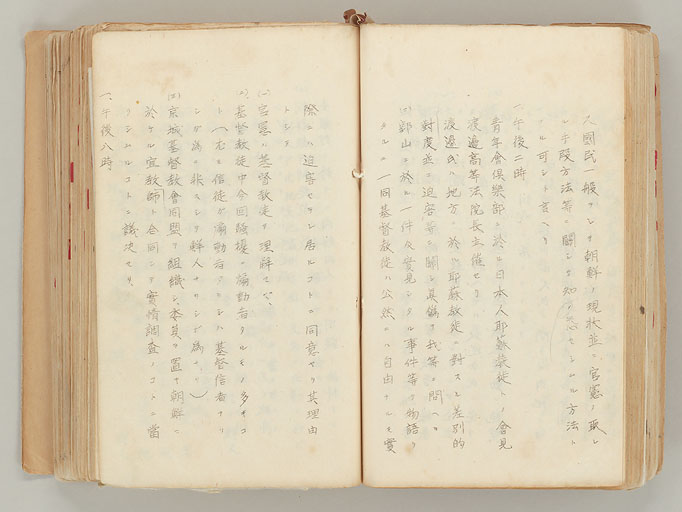 人國民一般ヲシテ朝鮮ノ現狀並ニ官憲ノ取レ
ル手段方法等ニ關シテ知ラセシムル方法ト
ル可シト言ヘリ
一、午後二時
青年會俱樂部ニ於テ日本人耶蘇教徒トノ會見
渡邊高等法院長主催セリ
渡邊氏ハ地方ニ於ケル耶蘇教徒ニ對スル差別的
對度並ニ迫害等ニ關シ眞偽ヲ我等ニ問ヘリ
郡山ニ於ル一件及實見シタル事件等ヲ物語リ
タルニ一同基督教徒ハ公然ニハ自由ナルモ實
際ニハ迫害セラレ居ルコトニ同意セリ其理由
トシテ
(イ)官憲ハ基督教徒ヲ理解セズ、
(ロ)基督教徒中今回騷擾ノ煽動者タルモノ多キコ
ト(右ハ信徒ガ煽動者タリシハ基督信者ナリ
シガ為ニ非スシテ鮮人ナリシガ為ナリ)
(ハ)京城基督教會同盟ヲ組織シ委員ヲ置キ朝鮮ニ
於ケル宣教師ト合同シテ實情調査ノコトニ當
ラシムルコトニ議決セリ、
一、午後八時